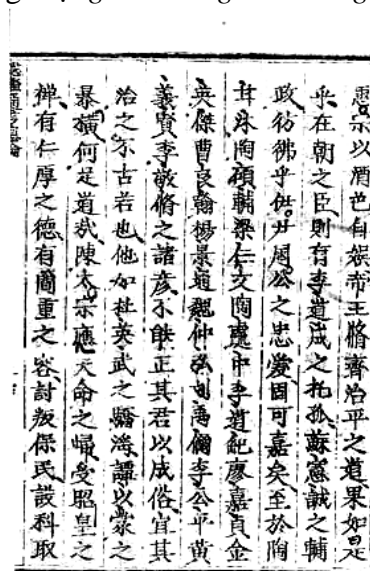 惠宗以酒色自娛帝王脩齊治平之道果如是
乎在朝之臣則有李道成之托孤蘇憲誠之輔
政彷彿乎伊尹周公之忠愛固可嘉矣至於陶
甘沐陶碩輔梁仁文陶處中李道紀廖嘉貞金
英傑曹良翰楊景道魏仲弘劉禹偁李公平黃
義賢李敬脩之諸彥不能正其君以成俗宜其
治之不古若也他如杜英武之驕淫譚以蒙之
暴橫何足道哉陳太宗應天命之歸受昭皇之
禅有仁厚之德有簡重之容討叛保民設科取